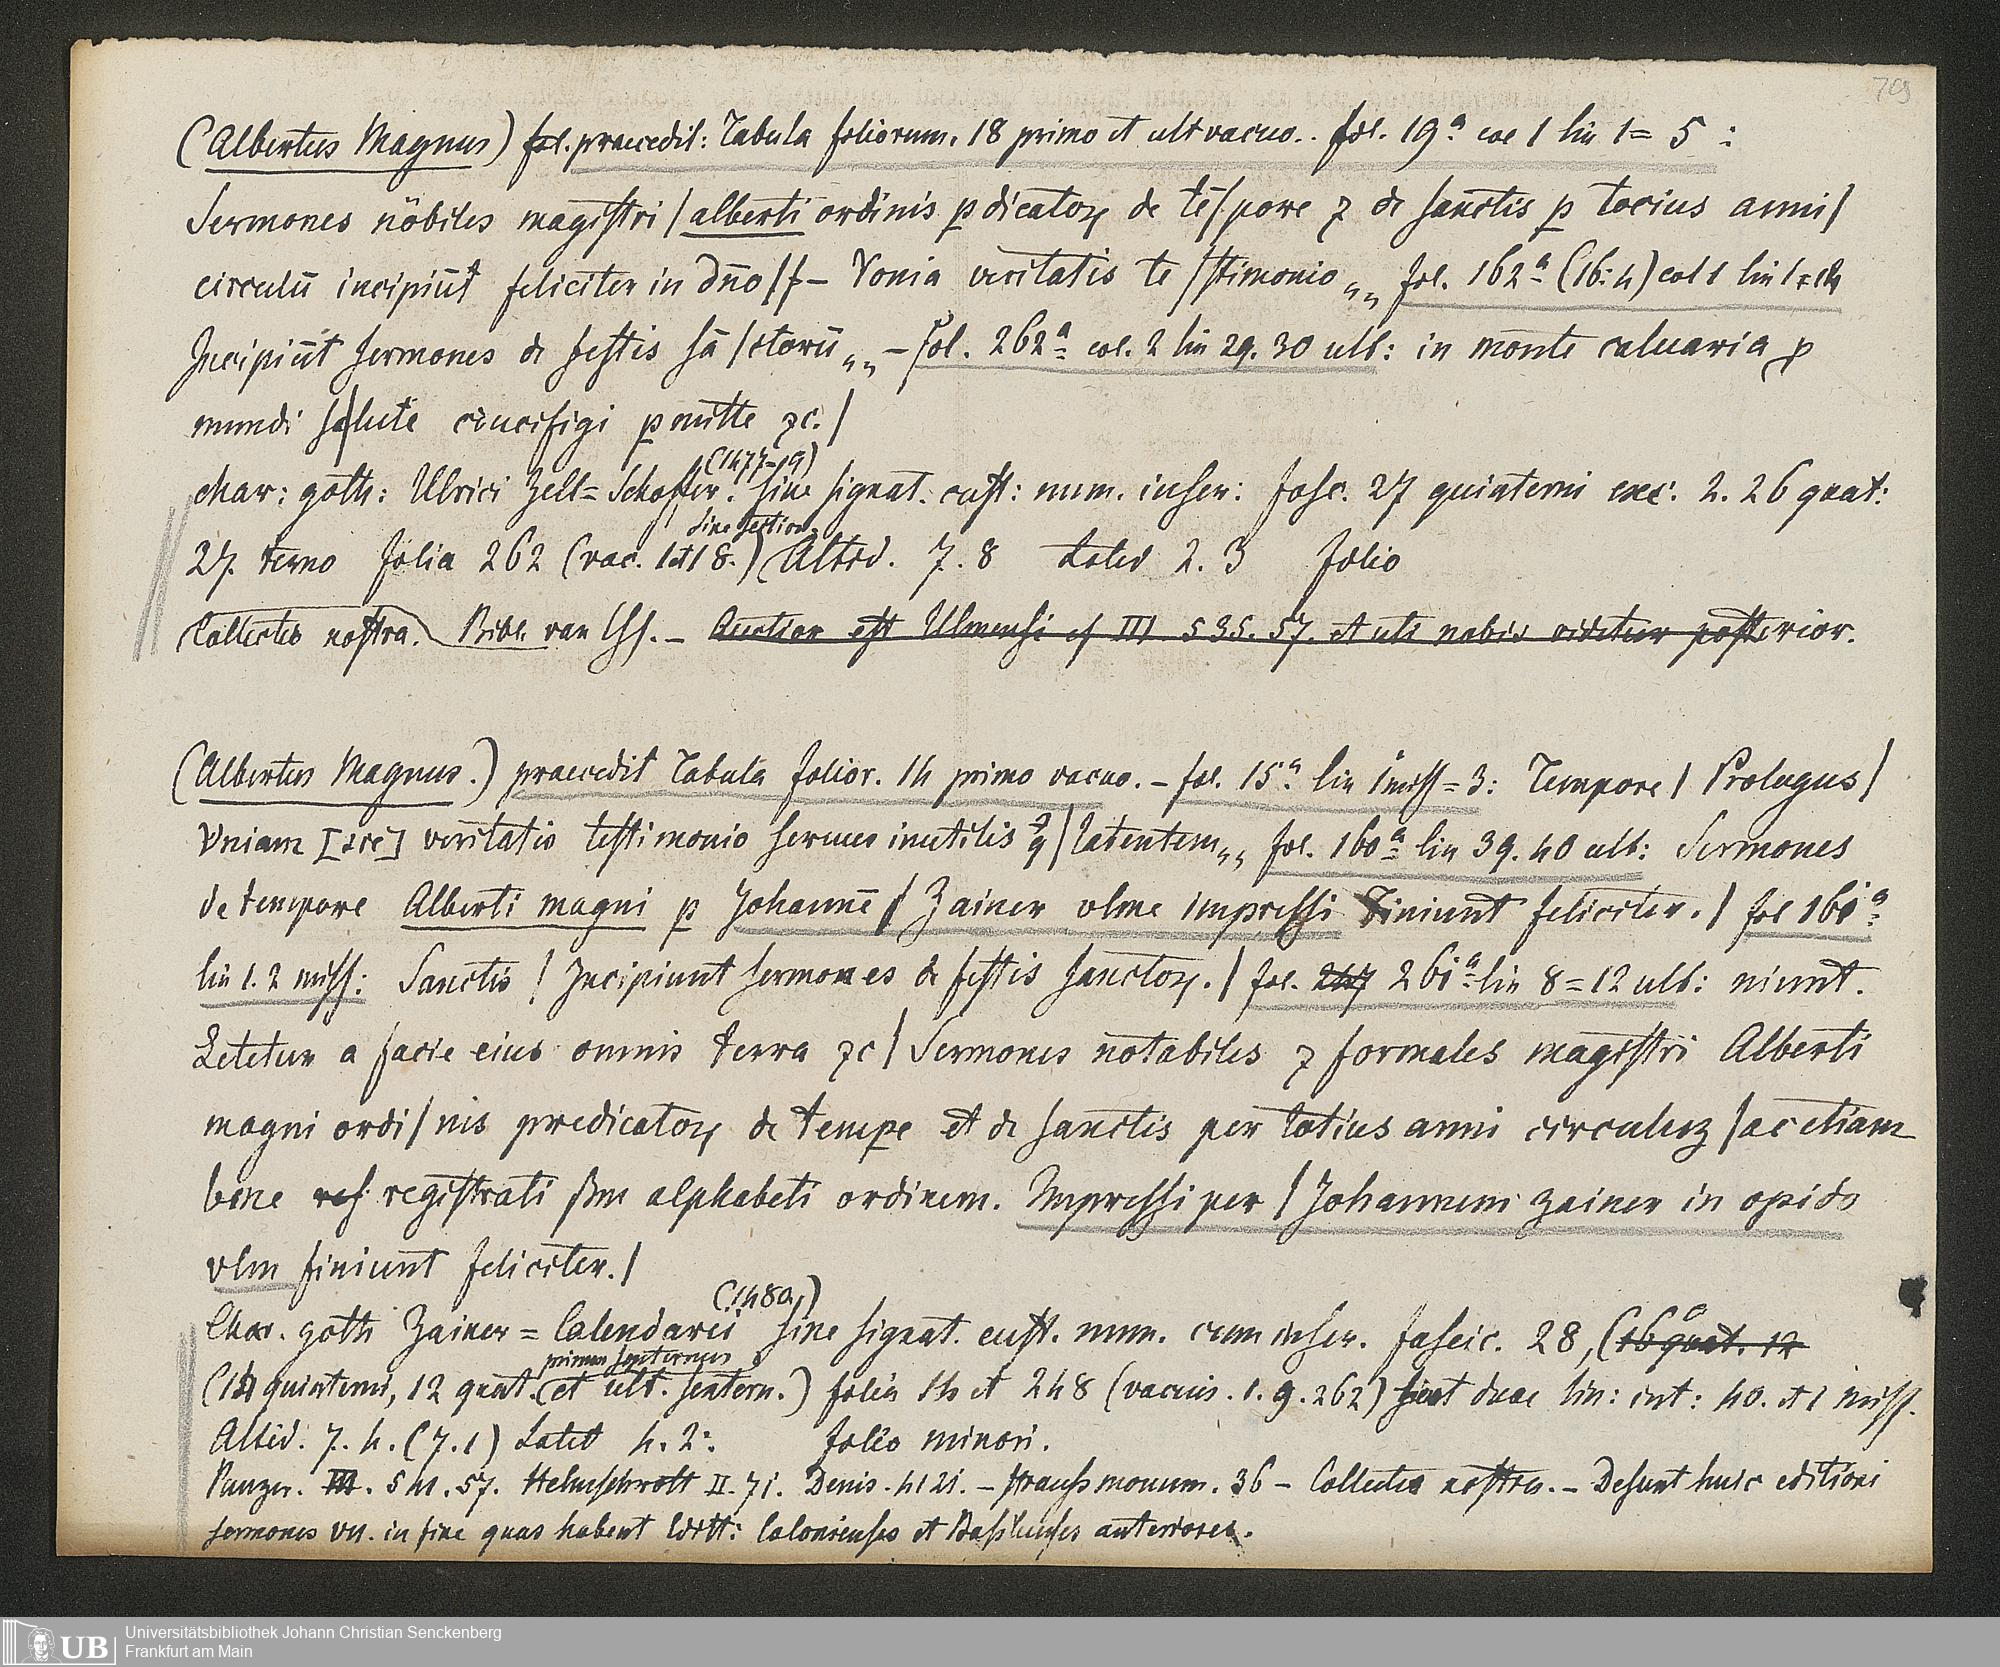 79
(Albertus Magnus) fol. praecedit: Tabula foliorum. 18 primo et ult vacuo.. fol. 19ª col 1 lin 1= 5 :
Sermones nōbiles magistri / alberti ordinis p dicatoꝝ de tē/pore ⁊ de sanctis p tocius anni /
circulū incipiūt feliciter in dn̄o // – Vonia veritatis te /stimonio „„ fol. 162ª (16:4) col 1 lin 1 et 2
Incipiūt sermones de festis sā /ctorū „„ – fol. 262ª col. 2 lin 29. 30 ult: in monte caluaria p
mundi salute crucifigi pmitte ⁊c. /
(1477-9)
char: goth: Ulrici Zell= Schoffer. sine signat. cust: num. inser: fasc. 27 quinterni exc. 2. 26 quat:
sine section.
27. terno folia 262 (vac. 1 et 18.) Altit. 7. 8 Latit 2. 3 folio
Collectio nostra. Bibl. van Ess. – Auctior est Ulmensi cf III 535. 57. et uti nobis videtur posterior.
(Albertus Magnus.) praecedit Tabula folior. 14 primo vacuo. – fol. 15ª lin 1 miss = 3: Tempore / Prologus /
Vniam [sic] veritatis testimonio sermo inutilis q̄ / latentem „„ fol. 160ª lin 39. 40 ult: Sermones
de tempore Alberti magni p Johannē / Zainer vlme impressi Finiunt feliciter. / fol 161ª
lin 1. 2 miss: Sanctis / Incipiunt sermones de festis sanctoꝝ. / fol. 247 261ª lin 8 = 12 ult: niunt.
Letetur a facie eius omnis terra ⁊c / Sermones notabiles ⁊ formales magistri Alberti
magni ordi / nis predicatoꝝ de tempe et de sanctis per totius anni circuluz / ac etiam
bene ref registrati sm alphabeti ordinem. Impressi per / Johannem zainer in opido
vlm finiunt feliciter. /
(1480,)
Char. goth Zainer = Calendarii sine signat. cust. num. cum inser. fascic. 28, (16 quat. 12
primus septernus
(14 quinterni, 12 quat. (et ult. septern.) folia 14 et 248 (vacuis. 1. 9. 262) sunt duae lin: int: 40. et 1 miss.
Altid. 7. 4. (7. 1) Latit 4. 2: folio minori.
Panzer. III. 541. 57. Helmschrott II. 71. Denis. 4121. – Strauss monum. 36 – Collectio nostra. – Desunt huic editioni
sermones VII. in fine quas habent Editt: Colonienses et Basileenses anteriores.
Universitätsbibliothek Johann Christian Senckenberg
UB Frankfurt am Main